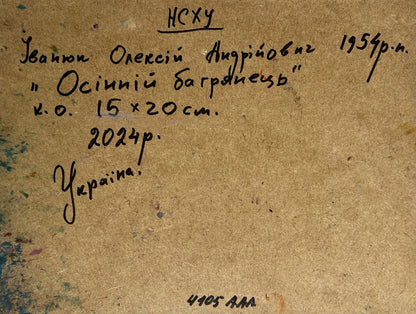 НСХУ
Іванюк Олексій Андрійович 1954р.н.
„Осінній багрянець"
к.о. 15×20см.
2024р.
Україна.
4105 ДЛЛ